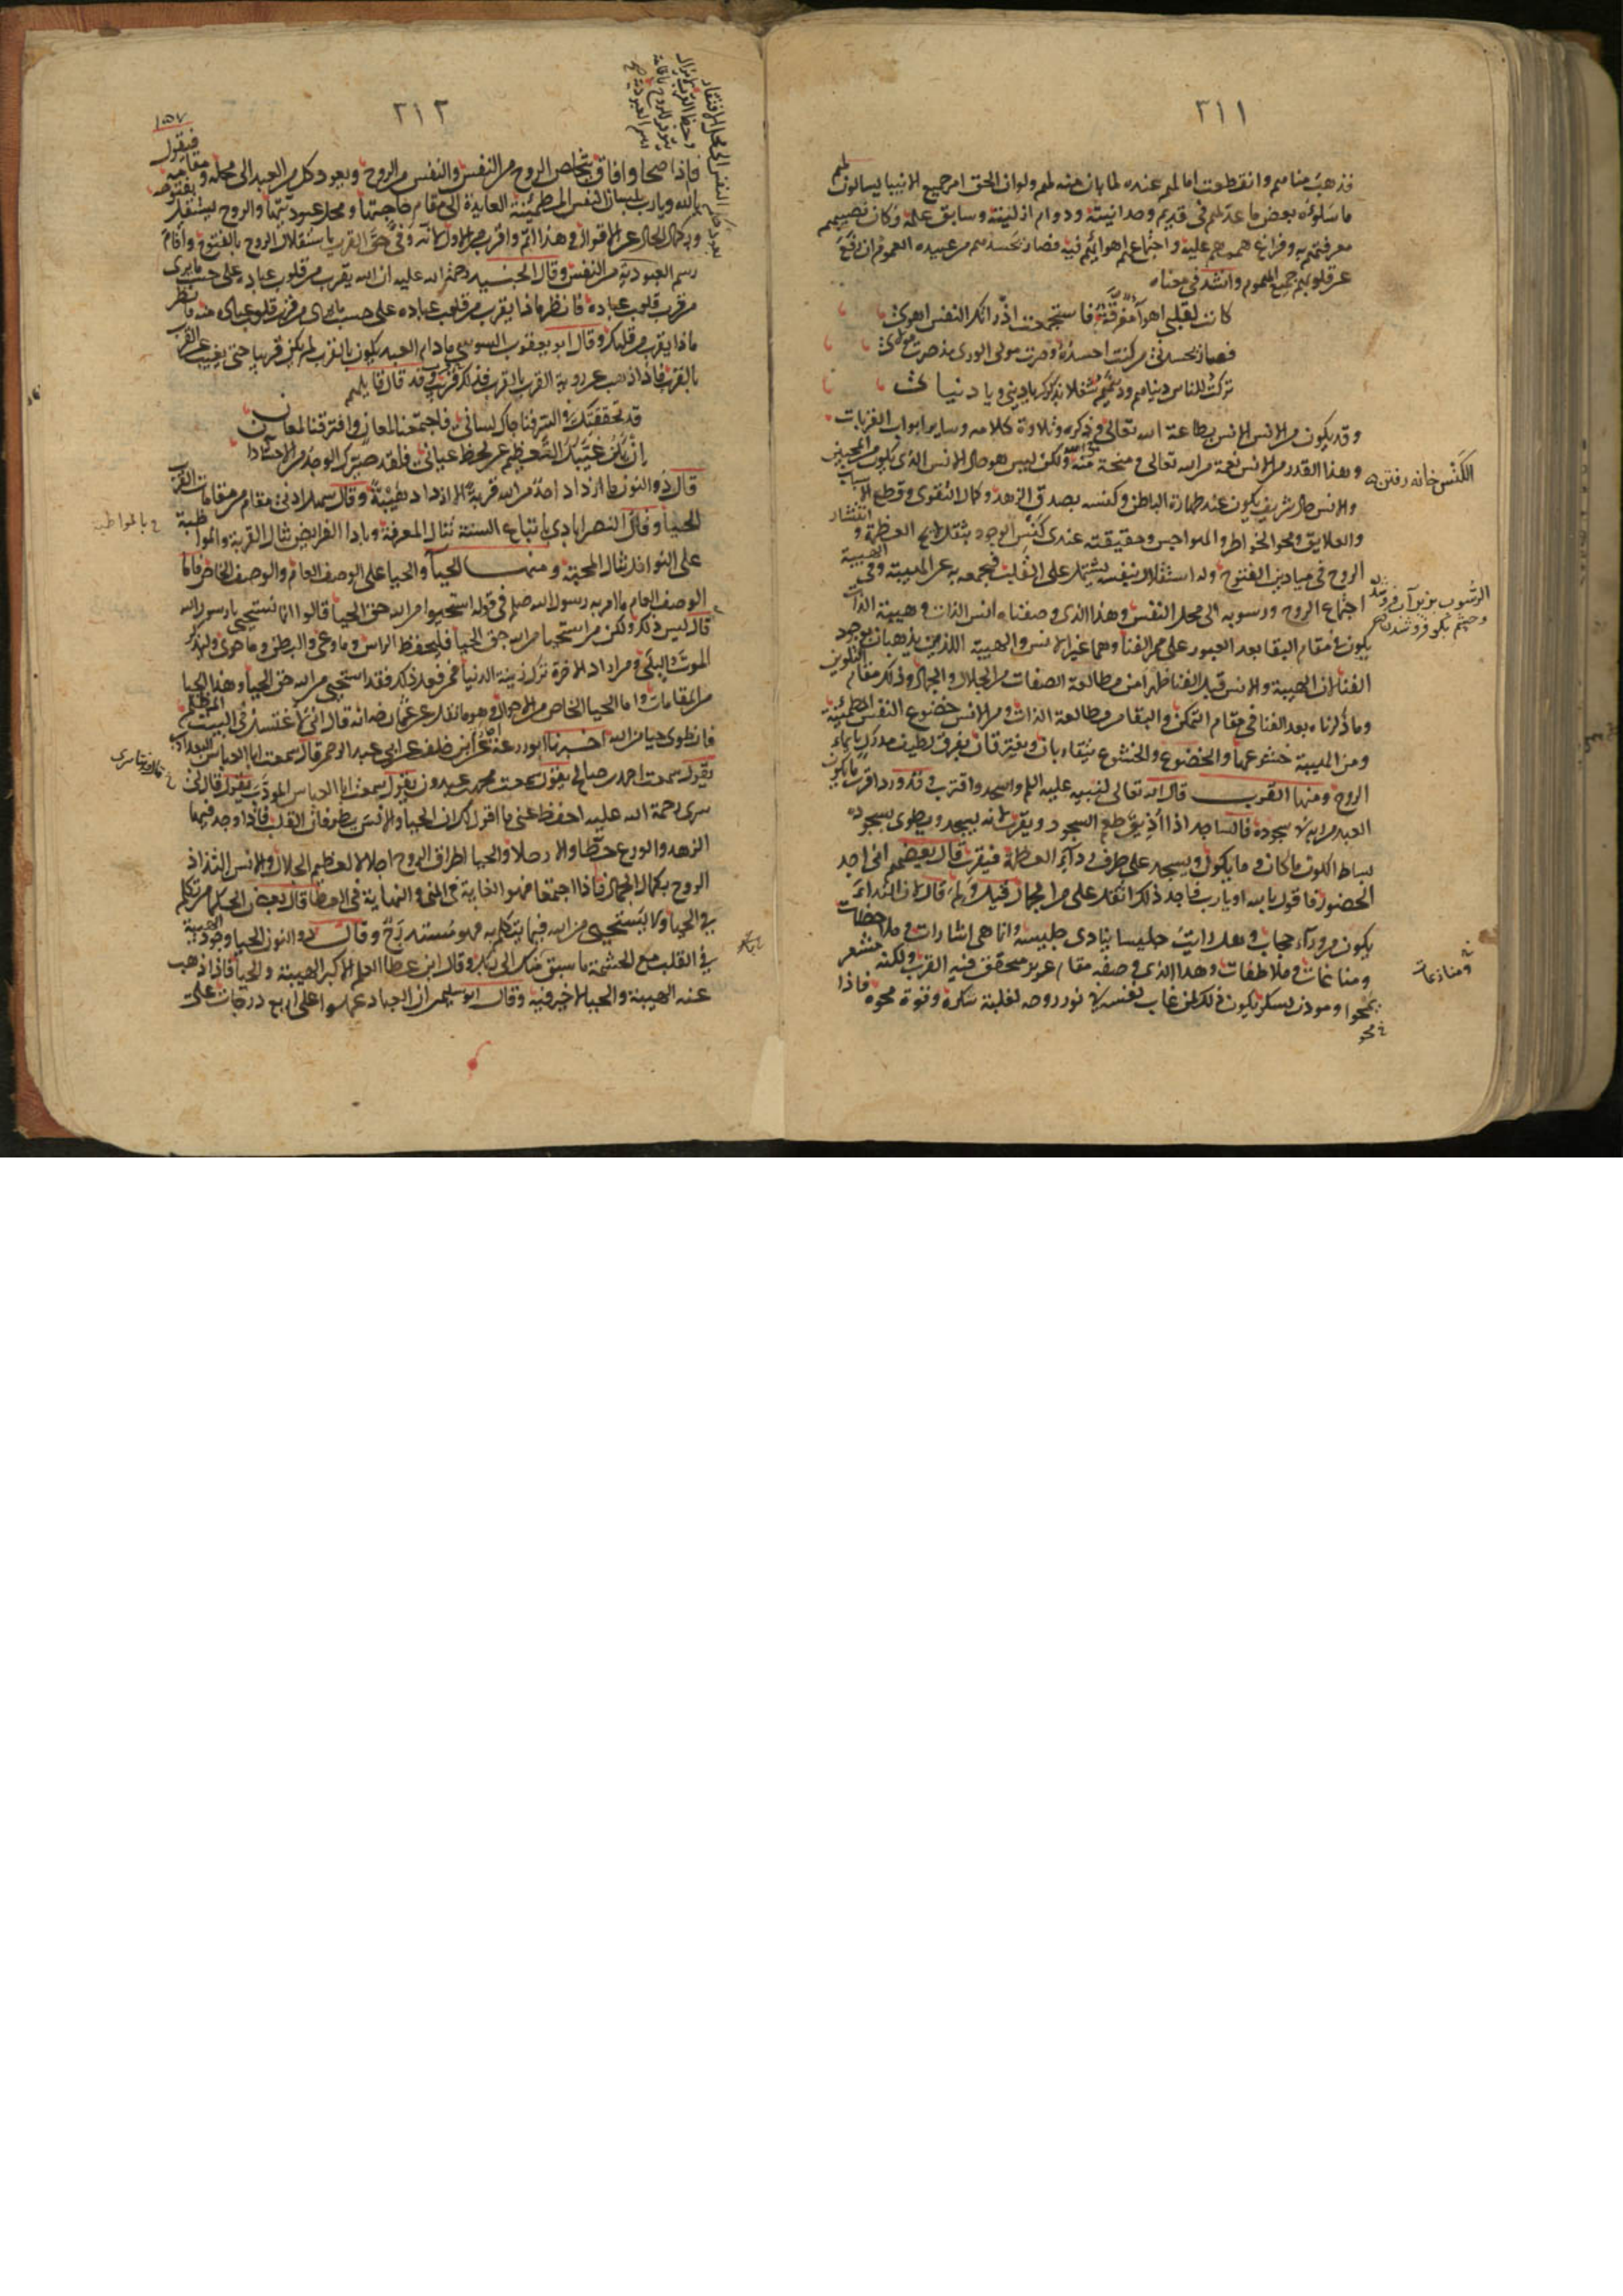 ٣١١
فذهبت مناهم وانقطعت امالهم عنده لما بان منه لهم ولو ان الحق امر جميع الانبيا يسالون لهم
ما سئلوه بعض ما عد لهم في قديم وحدانيته ودوام ازليته وسابق علمه وكان نصيبهم
معرفتهم به وفراغ هممهم عليه واجتماع اهوائهم فيه فصار يحسدهم من عبيده العموم ان رفع
عن قلوبهم جميع الهموم وانشد في معناه
كانت لقلبي اهوآء مفرقة فاستجمعت اذ راتك النفس اهوائي
فصار يحسدني من كنت احسده وصرت مولى الورى مذ صرت مولائي
تركت للناس دنياهم ودينهم شغلا بذكرك يا ديني ويا دنيائي
وقد يكون من الانس الانس بطاعة الله تعالى وذكره وتلاوة كلامه وساير ابواب القربات
وهذا القدر من الانس نعمة من الله تعالى ومنحة منه ولكن ليس هو حال الانس الذي يكون للمحبين
والانس حال شريف يكون عند طهارة الباطن وكنسه بصدق الزهد وكمال التقوى وقطع الاسباب
والعلايق ومحو الخواطر والهواجس وحقيقته عندي كنس الوجود بثقل لايح العظمة وانتشار
الروح في ميادين الفتوح وله استقلال بنفسه يشتمل على القلب فيجمعه به عن الهيبة وفي الهيبة
اجتماع الروح ورسوبه الى محل النفس وهذا الذي وصفناه انس الذات وهيبة الذات
يكون في مقام البقا بعد العبور على ممر الفنا وهما غير الانس والهيبة اللذين يذهبان بوجود
الفنا لان الهيبة والانس قبل الفنا ظهرا من مطالعة الصفات من الجلال والجمال وذلك مقام التلوين
وما ذكرناه بعد الفنا في مقام التمكن والبقا من مطالعة الذات ومن الانس خضوع النفس المطمئنة
ومن الهيبة خشوعها والخضوع والخشوع يتقاربان ويفترقان بفرق لطيف مدرك بايماء
الروح ومنها القرب قال الله تعالى لنبيه عليه السلم واسجد واقترب وقد ورد اقرب ما يكون
العبد من ربه في سجوده فالساجد اذا اذيق طعم السجود ويقرب لانه يسجد ويطوي بسجوده
بساط الكون ما كان وما يكون ويسجد على طرف رداء العظمة فيقرب قال بعضهم اني اجد
الحضور فاقول يا الله او يا رب فاجد ذلك اثقل علي من الجبال قيل ولم قال لان النداء
يكون من ورآء حجاب وهل رايت جليسا ينادي جليسه وانما هي اشارات وملاحظات
ومناغات وملاطفات وهذا الذي وصفه مقام عزيز متحقق فيه القرب ولكنه مشعر
بمحو ومؤذن بسكر يكون ذلك لمن غاب نفسه في نور روحه لغلبة سكره وقوة محوه فاذا
الكنس خانه رفتن
الرسوب بزير آن فروشد
وچشم بكو فروشدن
ومناغات
٣١٢
١٥٧
فاذا صحا وافاق يتخلص الروح من النفس والنفس من الروح ويعود كل من العبد الى محله ومقامه فيقول
يا الله ويا رب بلسان النفس المطمئنة العايدة الى مقام حاجتها ومحل عبوديتها والروح يستقل بفتوحه
وبكمال الحال عن الاقوال وهذا اتم واقرب من الاول لانه وفى حق القرب باستقلال الروح بالفتوح واقام
رسم العبودية من النفس وقال الجنيد رحمة الله عليه ان الله يقرب من قلوب عباده على حسب ما يرى
من قرب قلوب عباده منه فانظر
ماذا يقرب من قلبك وقال ابو يعقوب السوسي ما دام العبد يكون بالقرب لم يكن قريبا حتى يغيب عن القرب
بالقرب فاذا ذهب عن روية القرب بالقرب فذلك قرب وقد قال قايلهم
قد تحققتك في السر فناجاك لساني فاجتمعنا لمعان وافترقنا لمعان
ان يكن غيبك التعظيم عن لحظ عياني فلقد صيرك الوجد من الاحشا دان
قال ذو النون ما ازداد احد من الله قربة الا ازداد هيبة وقال سهل ادنى مقام من مقامات القرب
الحيا وقال النصراباذي باتباع السنة تنال المعرفة وبادا الفرايض تنال القربة وبالمواظبة
على النوافل تنال المحبة ومنها الحيآ والحيا على الوصف العام والوصف الخاص فاما
الوصف العام ما امر به رسول الله صلم في قوله استحيوا من الله حق الحيا قالوا انا نستحيي يا رسول الله
قال ليس ذلك ولكن من استحيا من الله حق الحيا فليحفظ الراس وما وعى والبطن وما حوى وليذكر
الموت والبلى ومن اراد الاخرة ترك زينة الدنيا فمن فعل ذلك فقد استحيى من الله حق الحيا وهذا الحيا
من المقامات واما الحيا الخاص من الاحوال وهو ما نقل عن عثمان رضه انه قال اني لاغتسل في البيت المظلم
فانطوي حيا من الله اخبرنا ابو زرعة عن ابن خلف عن ابي عبد الرحمن قال سمعت ابا العباس البغدادي
يقول سمعت احمد بن صالح يقول سمعت محمد بن عبدون يقول سمعت ابا العباس المؤدب يقول قال لي
سري رحمة الله عليه احفظ عني ما اقول لك ان الحيا والانس يطوفان القلب فاذا وجدا فيه
الزهد والورع حطا والا رحلا والحيا اطراق الروح اجلالا لعظيم الجلال والانس التذاذ
الروح بكمال الجمال فاذا اجتمعا فهو الغاية في المنى والنهاية في العطا قال بعض الحكما من تكلم
في الحيا ولا يستحيي من الله فيما يتكلم به فهو مستدرج وقال ذو النون الحيا وجود الهيبة
في القلب مع الحشمة ما سبق منك الى ربك وقال ابن عطا العلم الاكبر الهيبة والحيا فاذا ذهب
عنه الهيبة والحيا لا خير فيه وقال ابو سليمن ان العباد عملوا على اربع درجات على
بالمواظبة